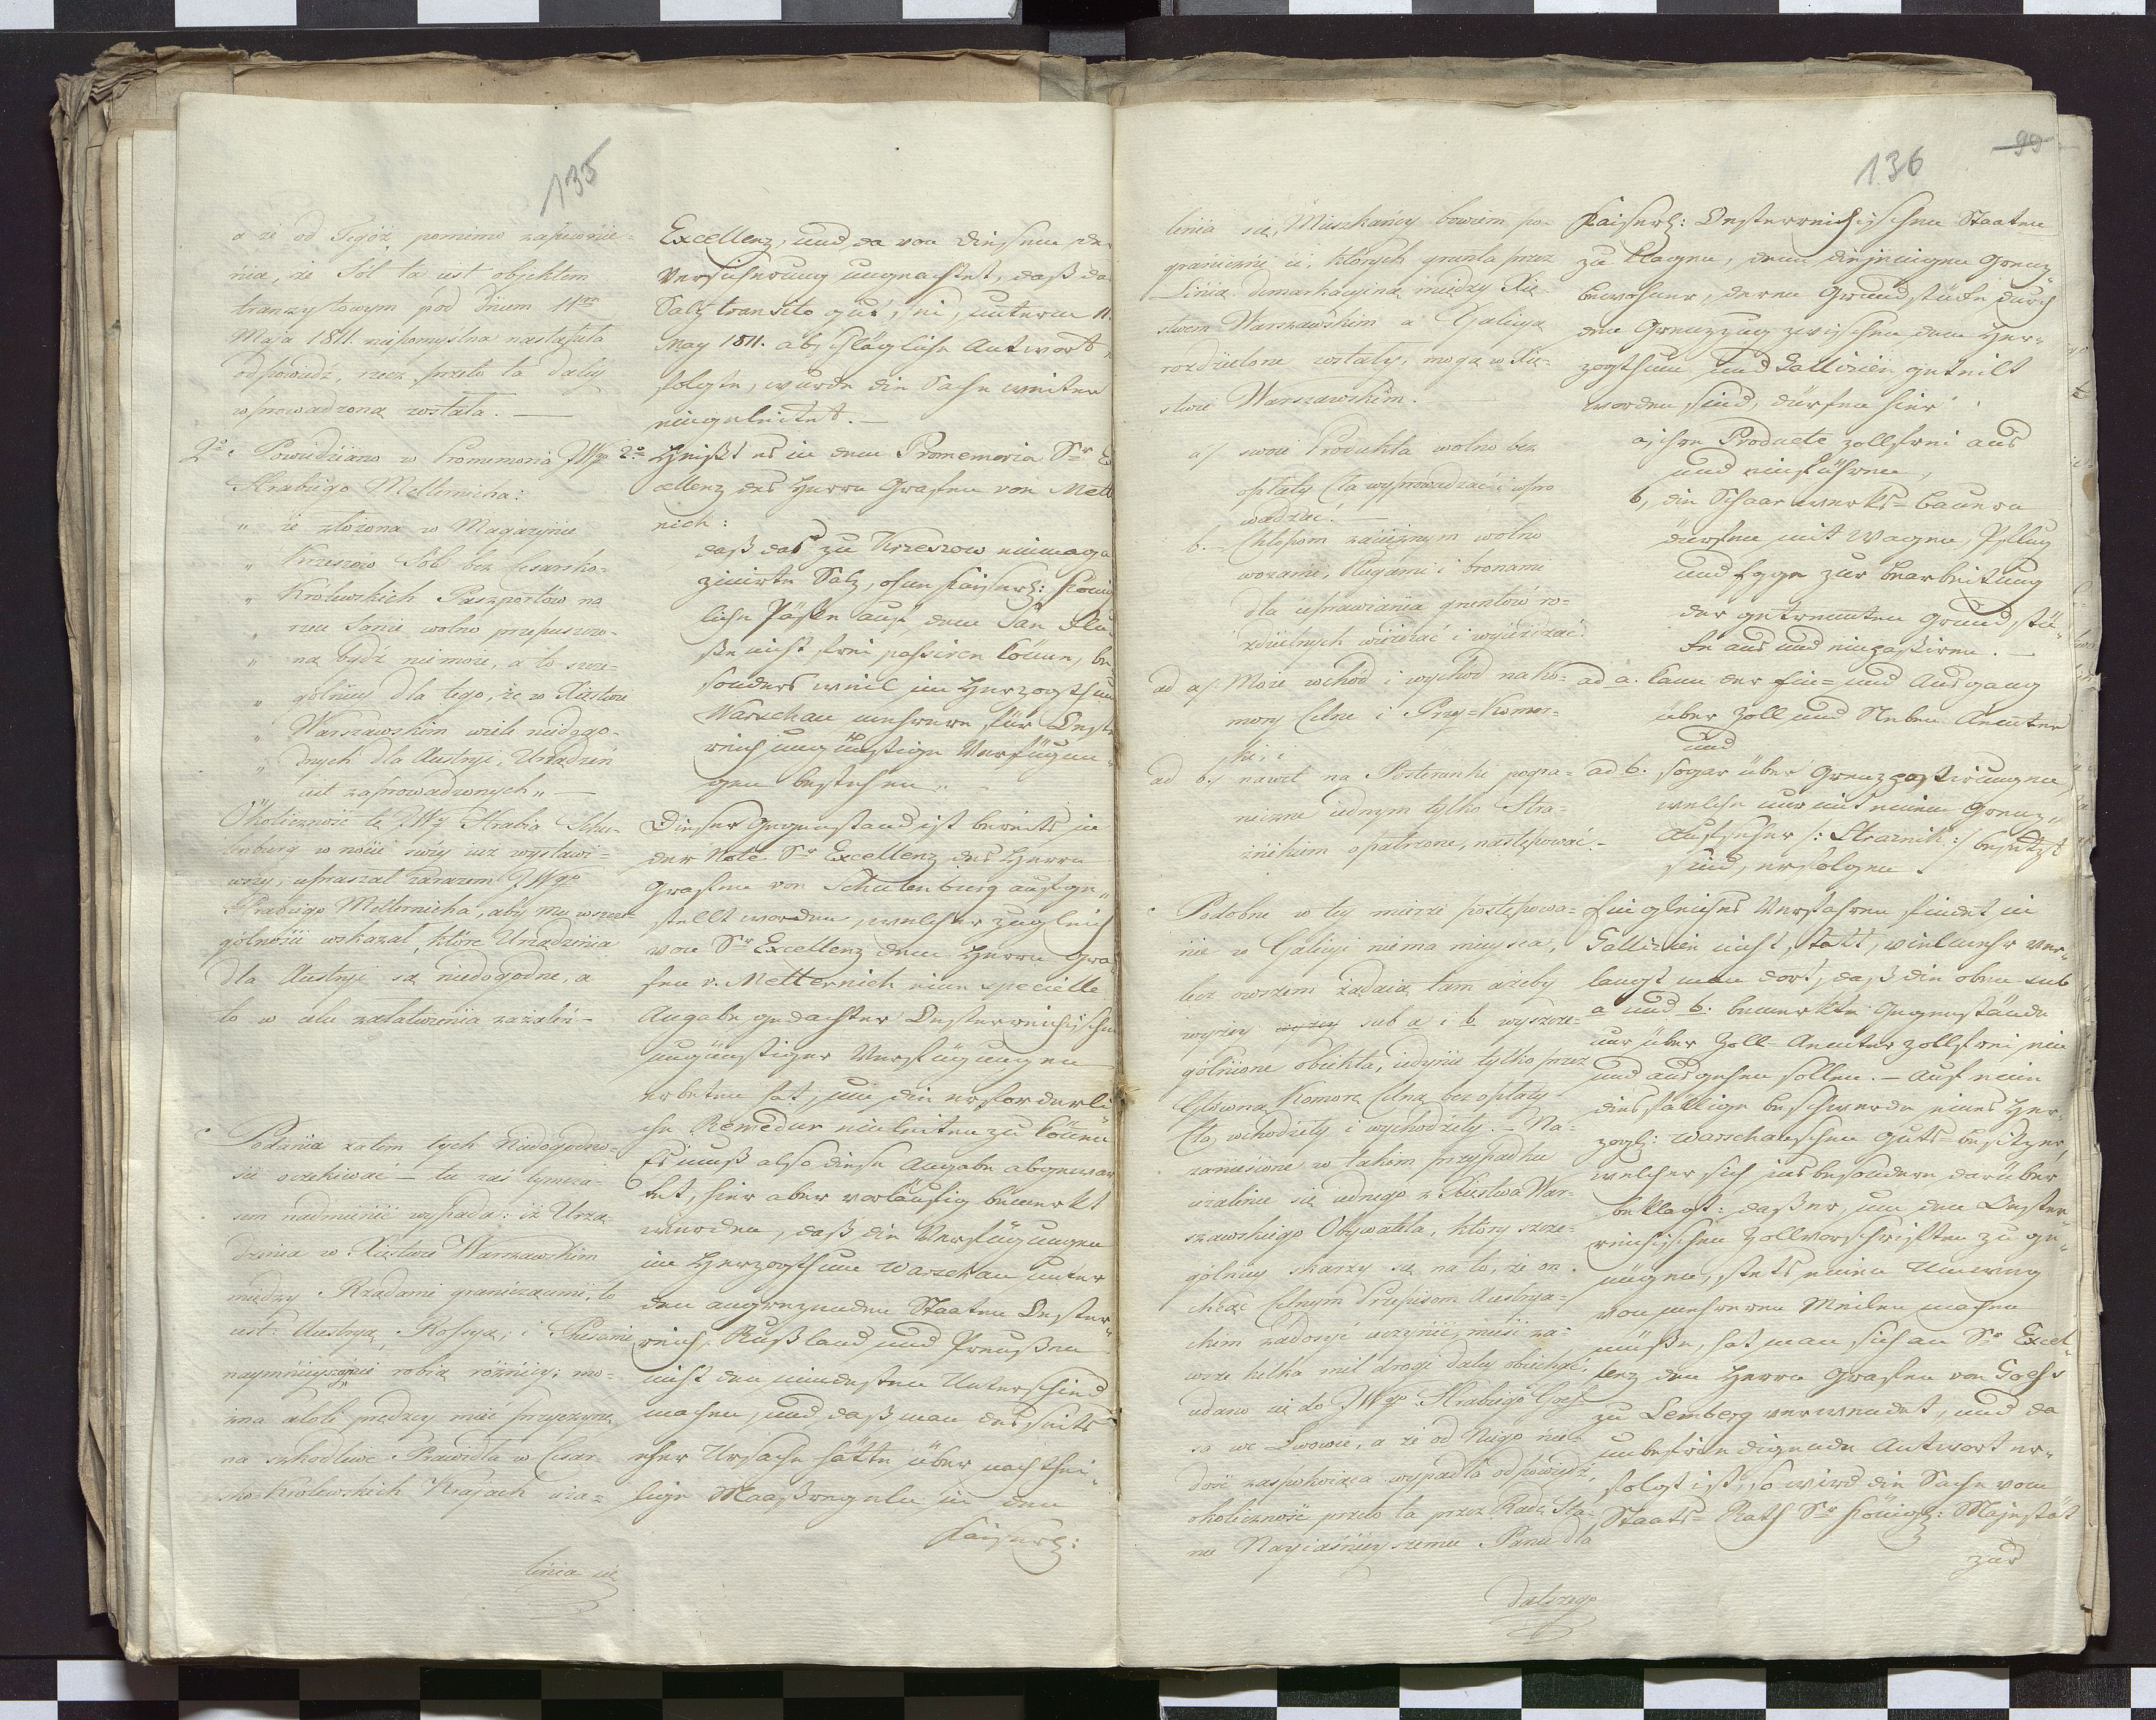 135
a że od Tegóż pomimo zapewnie-
nia, że Sól ta iest objektem
tranzytowym pod dniem 11m
Maja 1811. niepomyślna nastąpiła
odpowiedź, rzecz przeto ta daley
wprowadzona została. —
2o. Powiedziano w Promemoria JWgo
Hrabiego Metternicha:
„ że złożona w Magazynie
„ Krzeszów Sól bez Cesarsko-
„ Królewskich Paszportów na
„ rzece Sanie wolno przepuszczo-
„ na bydź niemoże, a to szcze-
„ gólniey dla tego, że w Xięstwie
„ Warszawskim wiele niedogo-
„ dnych dla Austryi, Urządzeń
iest zaprowadzonych „ —
Okoliczność tę JWy Hrabia Schu-
lenburg w nocie swéy iuż wystawi-
wszy, upraszał zarazem JWgo
Hrabiego Metternicha, aby mu wszcze-
gólności wskazał, które Urządzenia
dla Austryi są niedogodne, a
to w celu załatwienia zażaleń —
Podania zatem tych Niedogodno-
ści oczekiwać — tu zaś tymcza-
sem nadmienić wypada: iż Urzą-
dzenia w Xięstwie Warszawskim
między Rządami graniczącemi, to
iest: Austryą, Rossyą, i Prusami
naymnieyszéy nie robią różnicy; mo-
żna atoli prędzey mieć przyczynę
na szkodliwe Prawidła w Cesar-
sko-Królewskich Krajach uża-
linia się
Excellenz, und da von diesem der
Versicherung ungeachtet, daß das
Salz transito gut sei, unterm 11.
May 1811. abschlägliche Antwort er-
folgte, wurde die Sache weiter
eingeleitet. —
2o. Heißt es in dem Promemoria Sr Ex
cellenz des Herrn Grafen von Mett
nich:
daß das zu Krzeszow einmaga
zinirte Salz, ohne Kaiserl: König
liche Pässe auf dem San Flu
ße nicht frei passiren könne, be
sonders weil im Herzogthum
Warschau mehrere für Oester
reich ungünstige Verfügun-
gen bestehen „ —
Dieser Gegenstand ist bereits in
der Note Sr Excellenz des Herrn
Grafen von Schulenburg aufge-
stellt worden, welcher zugleich
von Sr Excellenz dem Herrn Gra
fen v. Metternich eine specielle
Angabe gedachter Oesterreichischen
ungünstiger Verfügungen
erbeten hat, um die erforderli
che Remedur einleiten zu können
Es muß also diese Angabe abgewar
tet, hier aber vorläufig bemerkt
werden, daß die Verfügungen
im Herzogthum Warschau unter
den angrenzenden Staaten Oester-
reich, Rußland und Preußen
nicht den mindesten Unterschied
machen, und daß man diesseits
eher Ursache hätte, über nachthei-
lige Maaßregeln in den
Kaiserl:
136
99
linia się, Mieszkańcy bowiem po-
graniczni ci, których grunta przez
Linią demarkacyiną między Xię-
stwem Warszawskim a Galicyą
rozdzielone zostały, mogą w Xię-
stwie Warszawskim. —
a/ swoie Produkta wolno bez
opłaty Cła wyprowadzać i wpro
wadzać. —
b. — Chłopom zaciężnym wolno
wozami, Pługami i bronami
dla uprawiania gruntów ro-
zdzielnych wieżdżać i wyieżdżać.
ad a/. Może wchód i wychód na Ko-
mory Celne i Przy-Komor-
ki, i
ad b./ nawet na Posterunki pogra-
niczne iednym tylko Stra-
żnikiem opatrzone, następować. —
Podobne w tey mierze postępowa-
nie w Galicyi niema mieysca,
lecz owszem żądaią tam ażeby
wyżey sub a i b wyszcze-
gólnione obiekta, iedynie tylko przez
Główną Komorę Celną bez opłaty
Cła, wchodziły i wychodziły. — Na-
zaniesione w takim przypadku
użalenie się iednego z Xięstwa War-
szawskiego Obywatela, który szcze-
gólniey skarży się na to, że on
chcąc Celnym Przepisom Austrya-
ckim zadosyć uczynić, musi za-
wsze kilka mil drogi daley obiechać,
udano się do JWgo Hrabiego Goes-
sa we Lwowie, a że od Niego nie-
dość zaspokoiaiąca wypadła odpowiedź,
okoliczność przeto ta przez Radę Sta-
nu Nayiaśnieyszemu Panu dla
dalszego
Kaiserl: Oesterreichischen Staaten
zu klagen, denn diejenigen Grenz-
bewohner, deren Grundstücke durch
den Grenzzug zwischen dem Her-
zogthum und Gallizien geteilt
worden sind, dürfen hier
a, ihre Producte zollfrei aus
und einführen,
b, die Schaarwerks-Bauern
dürfen mit Wagen, Pflug
und Egge zur Bearbeitung
der getrennten Grundstü-
cke aus und einpassiren. —
ad a. kann der Ein- und Ausgang
über Zoll und Neben Aemter
und
ad b. sogar über Grenzpostirungen
welche nur mit einem Grenz-
Aufseher /: Straznik :/ besetzt
sind, erfolgen.
Ein gleiches Verfahren findet in
Gallizien nicht statt, vielmehr ver-
langt man dort, daß die oben sub
a und b. bemerkte Gegenstände
nur über Zoll-Aemter zollfrei ein
und ausgehen sollen. — Auf eine
diesfällige Beschwerde eines Her-
zogl: Warschauschen Guts-Besitzer,
welcher sich insbesondere darüber
beklagt: daß er, um den Oester-
reichischen Zollvorschriften zu ge-
nügen, stets einen Umweg
von mehreren Meilen machen
müße, hat man sich an Sr Excel-
lenz den Herrn Grafen von Goehs
zu Lemberg verwendet, und da
unbefriedigende Antwort er-
folgt ist, so wird die Sache vom
Staats-Rath Sr Königl: Majestät
zur